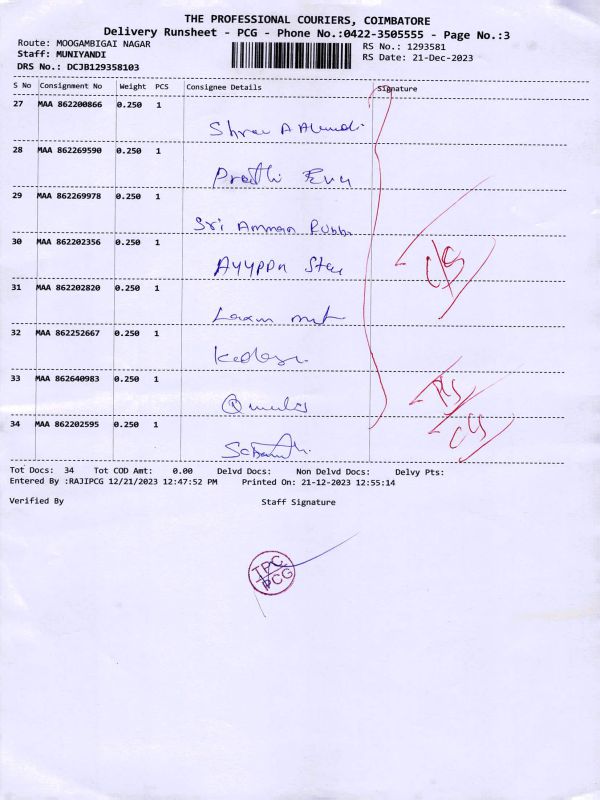 THE PROFESSIONAL COURIERS, COIMBATORE
Delivery Runsheet - PCG - Phone No.:0422-3505555 - Page No.:3
Route: MOOGAMBIGAI NAGAR RS No.: 1293581
Staff: MUNIYANDI RS Date: 21-Dec-2023
DRS No.: DCJB129358103
S No Consignment No Weight PCS Consignee Details Signature
27 MAA 862200866 0.250 1
28 MAA 862269590 0.250 1
29 MAA 862269978 0.250 1
Sri Amman
30 MAA 862202356 0.250 1
31 MAA 862202820 0.250 1
32 MAA 862252667 0.250 1
33 MAA 862640983 0.250 1
34 MAA 862202595 0.250 1
Tot Docs: 34 Tot COD Amt: 0.00 Delvd Docs: Non Delvd Docs: Delvy Pts:
Entered By :RAJIPCG 12/21/2023 12:47:52 PM Printed On: 21-12-2023 12:55:14
Verified By Staff Signature
TPC
PCG